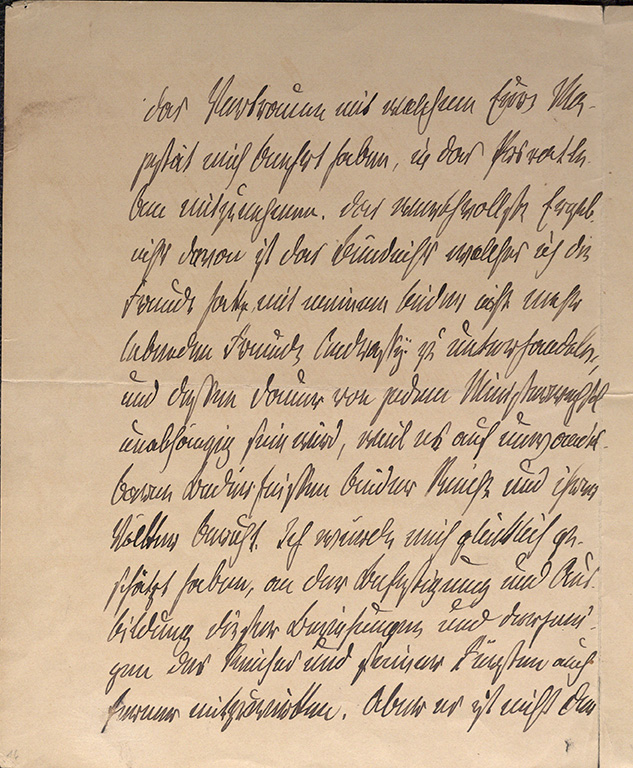 das Vertrauen mit welchem Eure Ma-
jestät mich beehrt haben, in das
mitzunehmen. Das werthvollste Ergeb-
niß davon ist das Bündniß welches ich die
Freude hatte mit meinem leider nicht mehr
lebenden Freunde Andrassy zu unterhandeln,
und dessen Dauer von jedem Ministerwechsel
unabhängig sein wird, weil es auf unwandel-
baren Bedürfnissen beider Reiche und ihrer
Völker beruht. Ich würde mich glücklich ge-
schätzt haben, an der Befestigung und Aus-
bildung dieser Beziehungen und derjeni-
gen des Reiches und seiner Fürsten auch
ferner mitzuwirken. Aber es ist nicht der